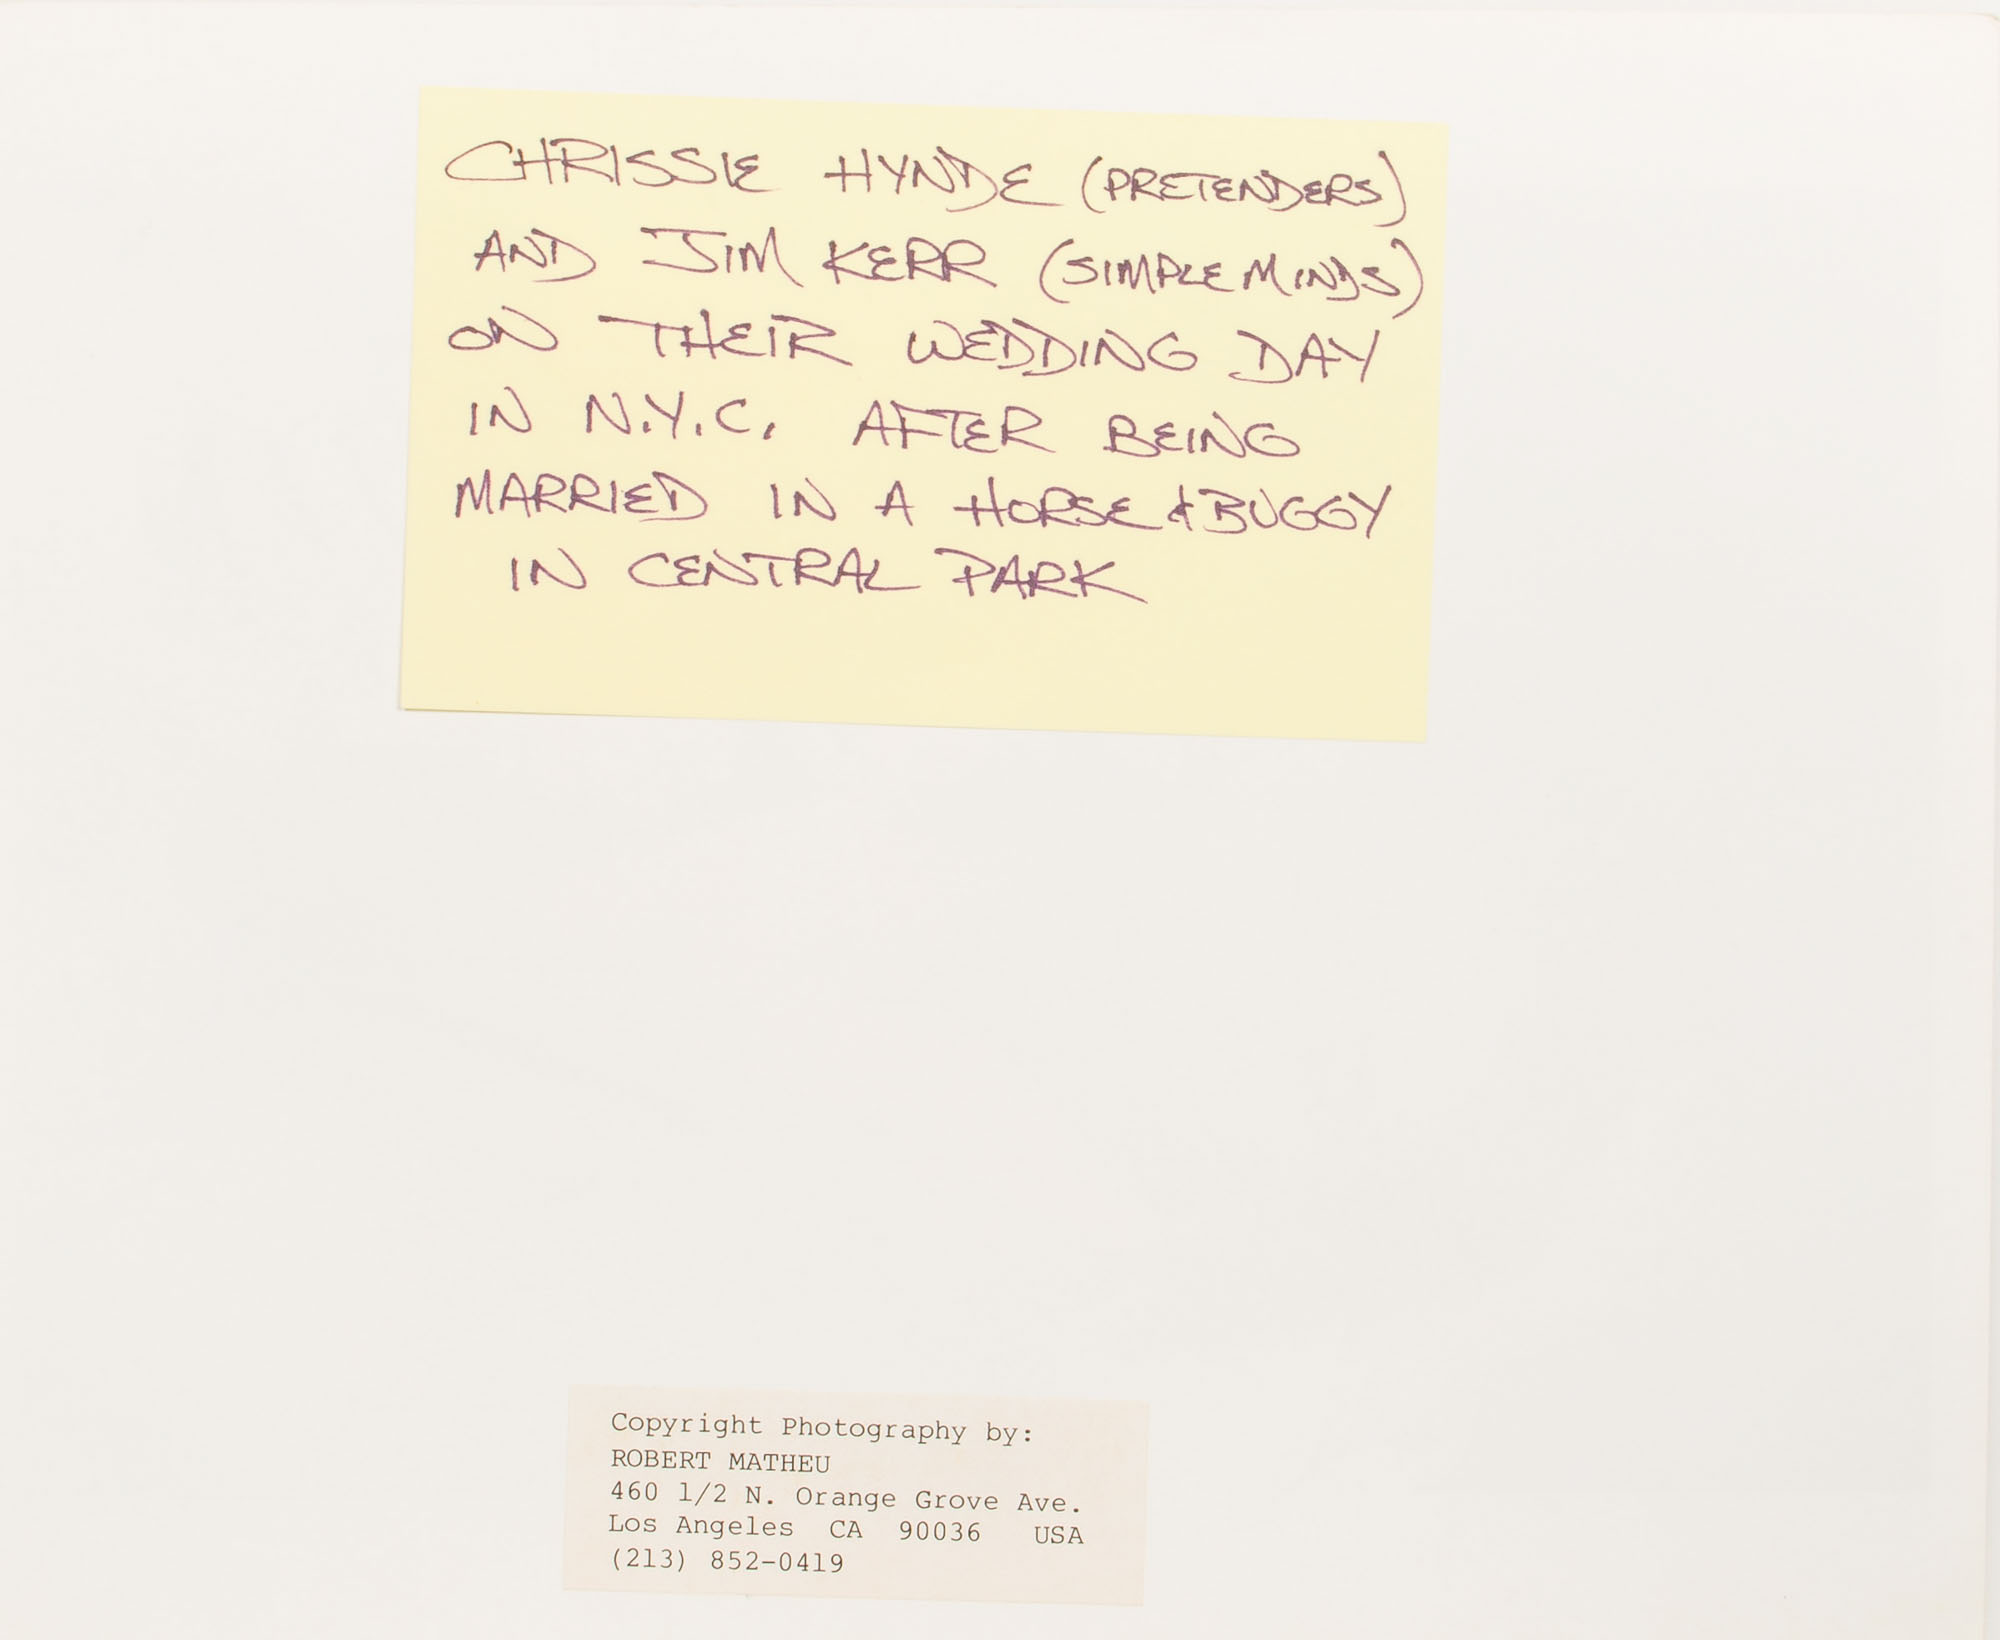 CHRISSIE HYNDE (PRETENDERS)
AND JIM KERR (SIMPLE MINDS)
ON THEIR WEDDING DAY
IN N.Y.C. AFTER BEING
MARRIED IN A HORSE & BUGGY
IN CENTRAL PARK
Copyright Photography by:
ROBERT MATHEU
460 1/2 N. Orange Grove Ave.
Los Angeles CA 90036 USA
(213) 852-0419